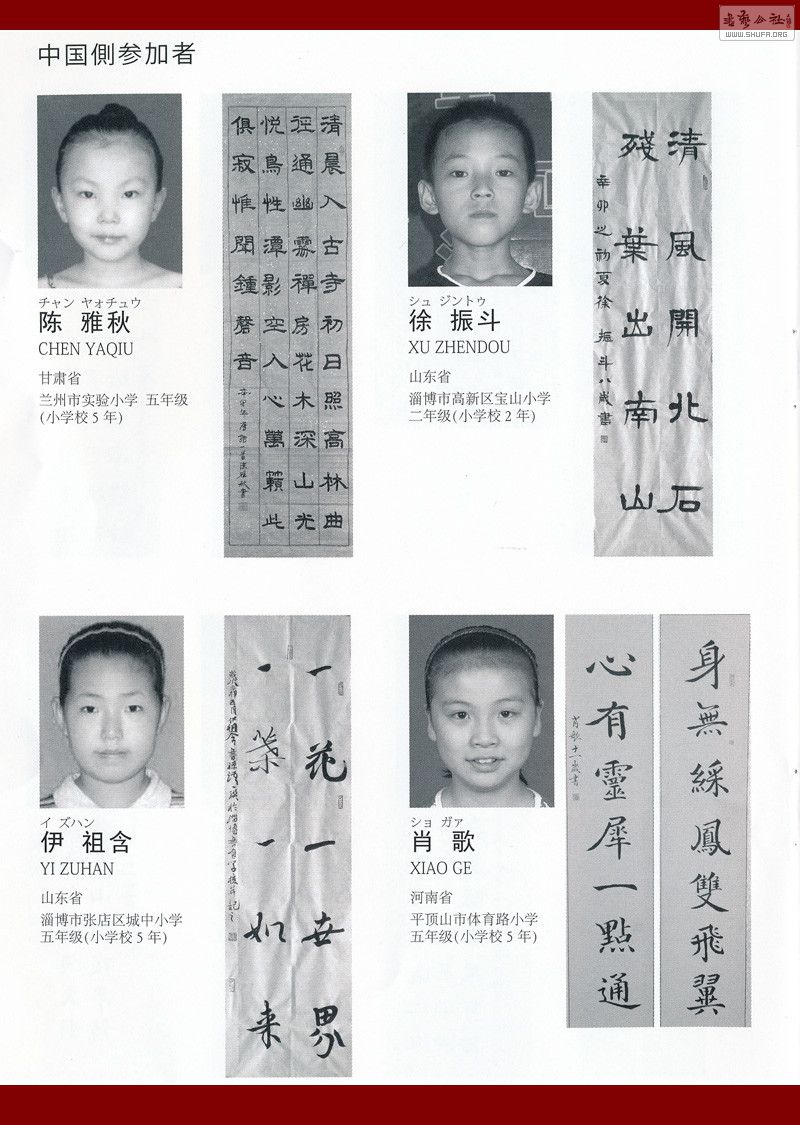 WWW.SHUFA.ORG
中国側参加者
チャン ヤォチュウ
陈 雅秋
CHEN YAQIU
甘肃省
兰州市实验小学 五年级
(小学校5年)
清晨入古寺初日照高林曲
径通幽處禪房花木深山光
悦鳥性潭影空人心萬籟此
俱寂惟聞鍾磬音
シュ ジントゥ
徐 振斗
XU ZHENDOU
山东省
淄博市高新区宝山小学
二年级(小学校2年)
清風開北石
殘葉出南山
辛卯之初夏徐振斗八歲書
イ ズハン
伊 祖含
YI ZUHAN
山东省
淄博市张店区城中小学
五年级(小学校5年)
一花一世界
一葉一如来
ショ ガァ
肖 歌
XIAO GE
河南省
平顶山市体育路小学
五年级(小学校5年)
身無綵鳳雙飛翼
心有靈犀一點通
肖歌十一歲書